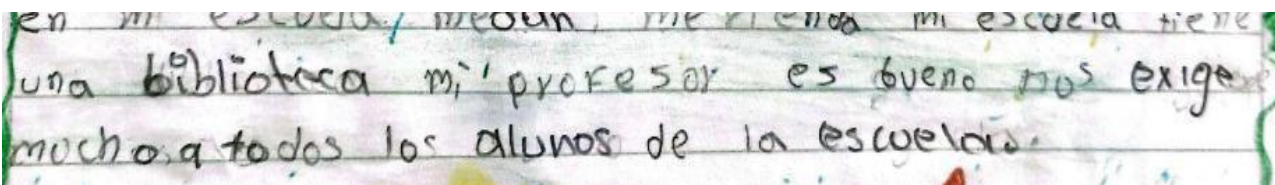 en mi escuela, me dan merienda mi escuela tiene
una biblioteca mi profesor es bueno nos exige
mucho a todos los alunos de la escuela.